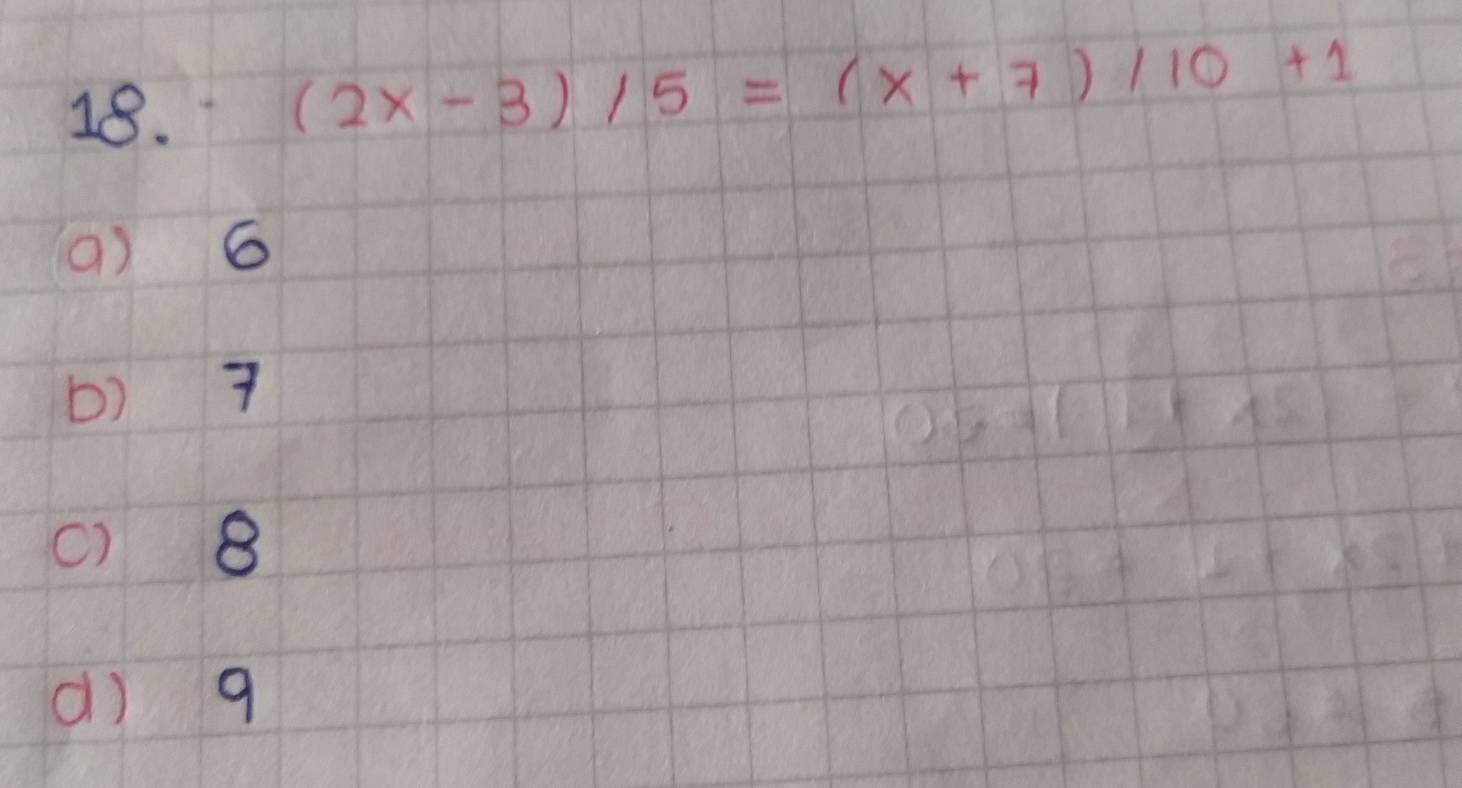 18. (2x - 3) / 5 = (x + 7) / 10 + 1
a) 6
b) 7
c) 8
d) 9